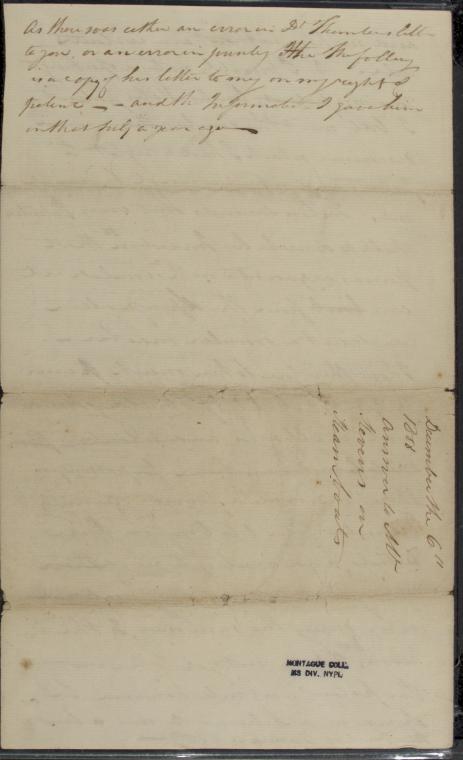 As there was either an error in Dr Thornton's letter
to you, or an error in printing the following
is a copy of his letter to my on my right &
patent — and the Information I gave him
on that subj a year ago
December the 6th
1813
answer to Mr
Stevens on
Steam boats
MONTAGUE COLL.
MS DIV. NYPL